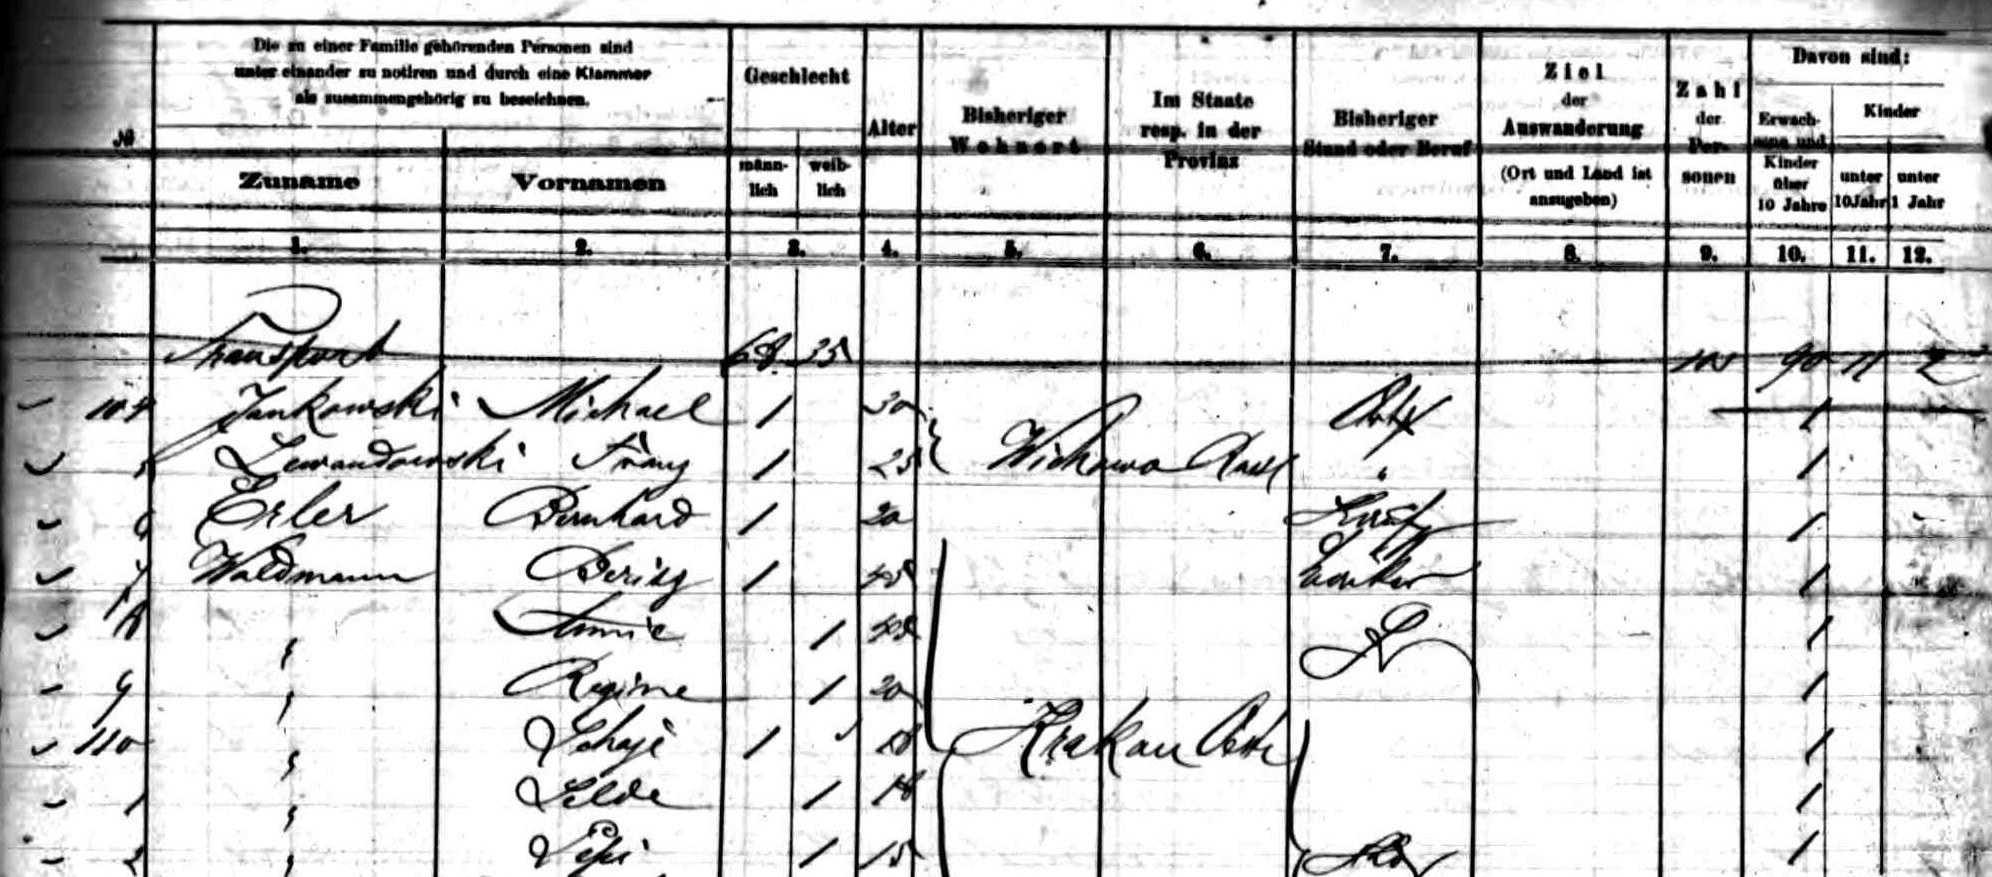 Die zu einer Familie gehörenden Personen sind
unter einander zu notiren und durch eine Klammer
als zusammengehörig zu bezeichnen.
Geschlecht
Alter
Bisheriger
Wohnort
Im Staate
resp. in der
Provinz
Bisheriger
Stand oder Beruf
Ziel
der
Auswanderung
(Ort und Land ist
anzugeben)
Zahl
der
Per-
sonen
Davon sind:
Erwach-
sene und
Kinder
über
10 Jahre
Kinder
unter
10 Jahr
unter
1 Jahr
№
Zuname
Vornamen
männ-
lich
weib-
lich
1. 2. 3. 4. 5. 6. 7. 8. 9. 10. 11. 12.
Transport 68 35 103 90 11 2
104 Jankowski Michael 1 30 1
5 Lewandowski Franz 1 25 Wichowo Russl " 1
6 Erler Bernhard 1 20 1
7 Waldmann 1 1
8 " Annie 1 1
9 " Regine 1 20 1
110 " Schaje 1 18 Krakau Oestr 1
1 " 1 18 1
2 " Pepi 1 15 1